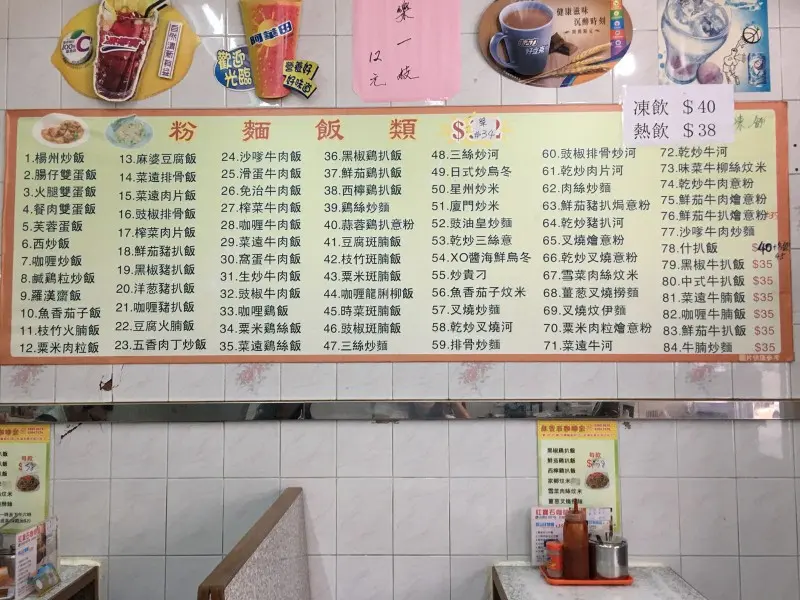 100%
自然清新有益
歡迎光臨
阿華田
營養好
好味道
樂一枝
12元
健康滋味
沉醉時刻
凍飲 $40
熱飲 $38
粉麵飯類
$
單
#34
1.楊州炒飯
2.腸仔雙蛋飯
3.火腿雙蛋飯
4.餐肉雙蛋飯
5.芙蓉蛋飯
6.西炒飯
7.咖喱炒飯
8.鹹鷄粒炒飯
9.羅漢齋飯
10.魚香茄子飯
11.枝竹火腩飯
12.粟米肉粒飯
13.麻婆豆腐飯
14.菜遠排骨飯
15.菜遠肉片飯
16.豉椒排骨飯
17.榨菜肉片飯
18.鮮茄豬扒飯
19.黑椒豬扒飯
20.洋葱豬扒飯
21.咖喱豬扒飯
22.豆腐火腩飯
23.五香肉丁炒飯
24.沙嗲牛肉飯
25.滑蛋牛肉飯
26.免治牛肉飯
27.榨菜牛肉飯
28.咖喱牛肉飯
29.菜遠牛肉飯
30.窩蛋牛肉飯
31.生炒牛肉飯
32.豉椒牛肉飯
33.咖哩鷄飯
34.粟米鷄絲飯
35.菜遠鷄絲飯
36.黑椒鷄扒飯
37.鮮茄鷄扒飯
38.西檸鷄扒飯
39.鷄絲炒麵
40.蒜蓉鷄扒意粉
41.豆腐斑腩飯
42.枝竹斑腩飯
43.粟米斑腩飯
44.咖喱龍脷柳飯
45.時菜斑腩飯
46.豉椒斑腩飯
47.三絲炒麵
48.三絲炒河
49.日式炒烏冬
50.星州炒米
51.廈門炒米
52.豉油皇炒麵
53.乾炒三絲意
54.XO醬海鮮烏冬
55.炒貴刁
56.魚香茄子炆米
57.叉燒炒麵
58.乾炒叉燒河
59.排骨炒麵
60.豉椒排骨炒河
61.乾炒肉片河
62.肉絲炒麵
63.鮮茄豬扒焗意粉
64.乾炒豬扒河
65.叉燒燴意粉
66.乾炒叉燒意粉
67.雪菜肉絲炆米
68.薑葱叉燒撈麵
69.叉燒炆伊麵
70.粟米肉粒燴意粉
71.菜遠牛河
72.乾炒牛河
73.味菜牛柳絲炆米
74.乾炒牛肉意粉
75.鮮茄牛肉燴意粉
76.鮮茄牛扒燴意粉
77.沙嗲牛肉炒麵
78.什扒飯 40
79.黑椒牛扒飯 $35
80.中式牛扒飯 $35
81.菜遠牛腩飯 $35
82.咖喱牛腩飯 $35
83.鮮茄牛扒飯 $35
84.牛腩炒麵 $35
圖片只供參考
黑椒鷄扒飯
鮮茄鷄扒飯
西檸鷄扒飯
雪菜肉絲炆米
薑葱叉燒撈麵
每款